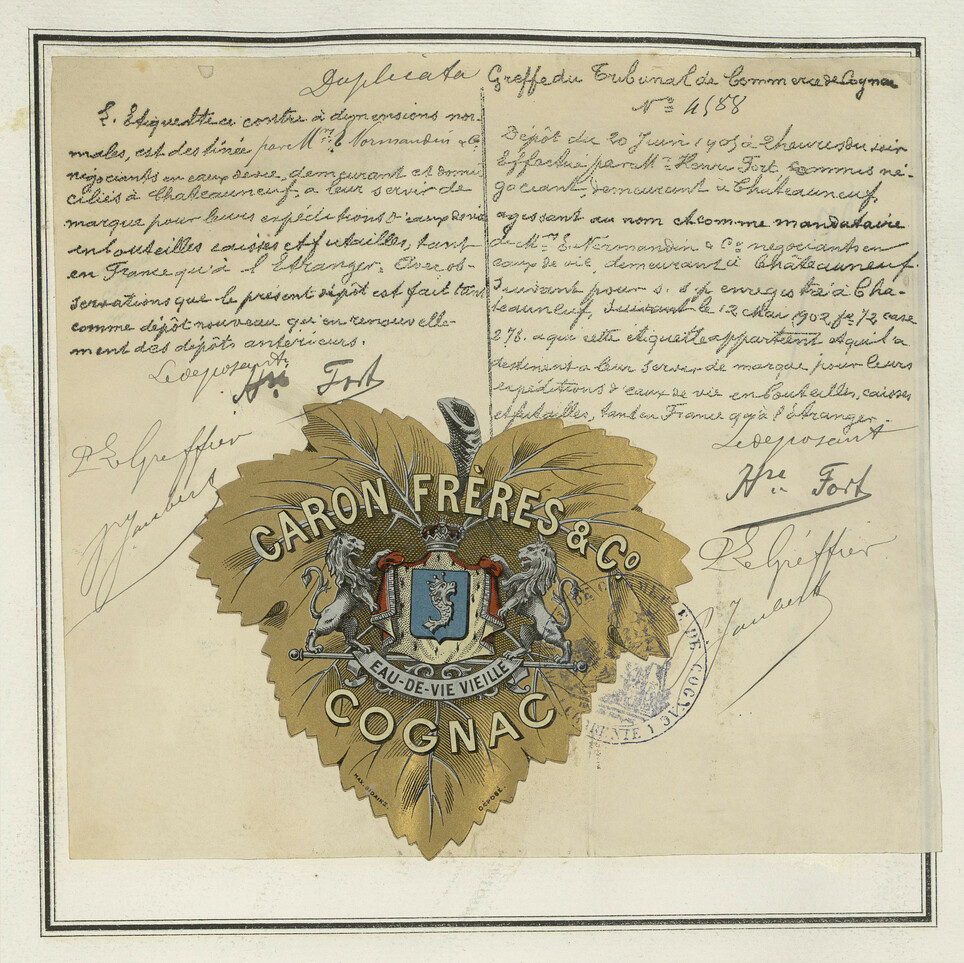 Duplicata
L'Etiquette ci contre à dimensions nor-
males, est destinée par Mrs E Normandin & Co
négociants en eaux de vie, demeurant et domi-
ciliés à Chateauneuf, à leur servir de
marque pour leurs expéditions d'eaux de vie
en bouteilles caisses et futailles, tant
en France qu'à l'Etranger. Avec ob-
servations que le présent dépôt est fait tant
comme dépôt nouveau qu'en renouvelle-
ment des dépôts antérieurs.
Le déposant.
Hre Fort
Le Greffier
Jaubert
Greffe du Tribunal de Commerce de Cognac
No 4588
Dépôt du 20 Juin 1905 à 2 heures du soir
Effectué par Mr Henri Fort, commis né-
gociant, demeurant à Chateauneuf,
agissant au nom et comme mandataire
de Mrs E. Normandin & Co négociants en
eaux de vie, demeurant à Châteauneuf.
Suivant pour s. s/p enregistré à Cha-
teauneuf, suivant le 12 Mai 1902 fo 72 case
278. a que cette étiquette appartient et qu'il a
destinent à leur servir de marque pour leurs
expéditions d'eaux de vie en bouteilles, caisses
et futailles, tant en France qu'à l'étranger.
Le déposant
Hre Fort
Le Gréffier
Jaubert
CARON FRÈRES & Co
EAU-DE-VIE VIEILLE
COGNAC
DÉPOSÉ.
DE COGNAC